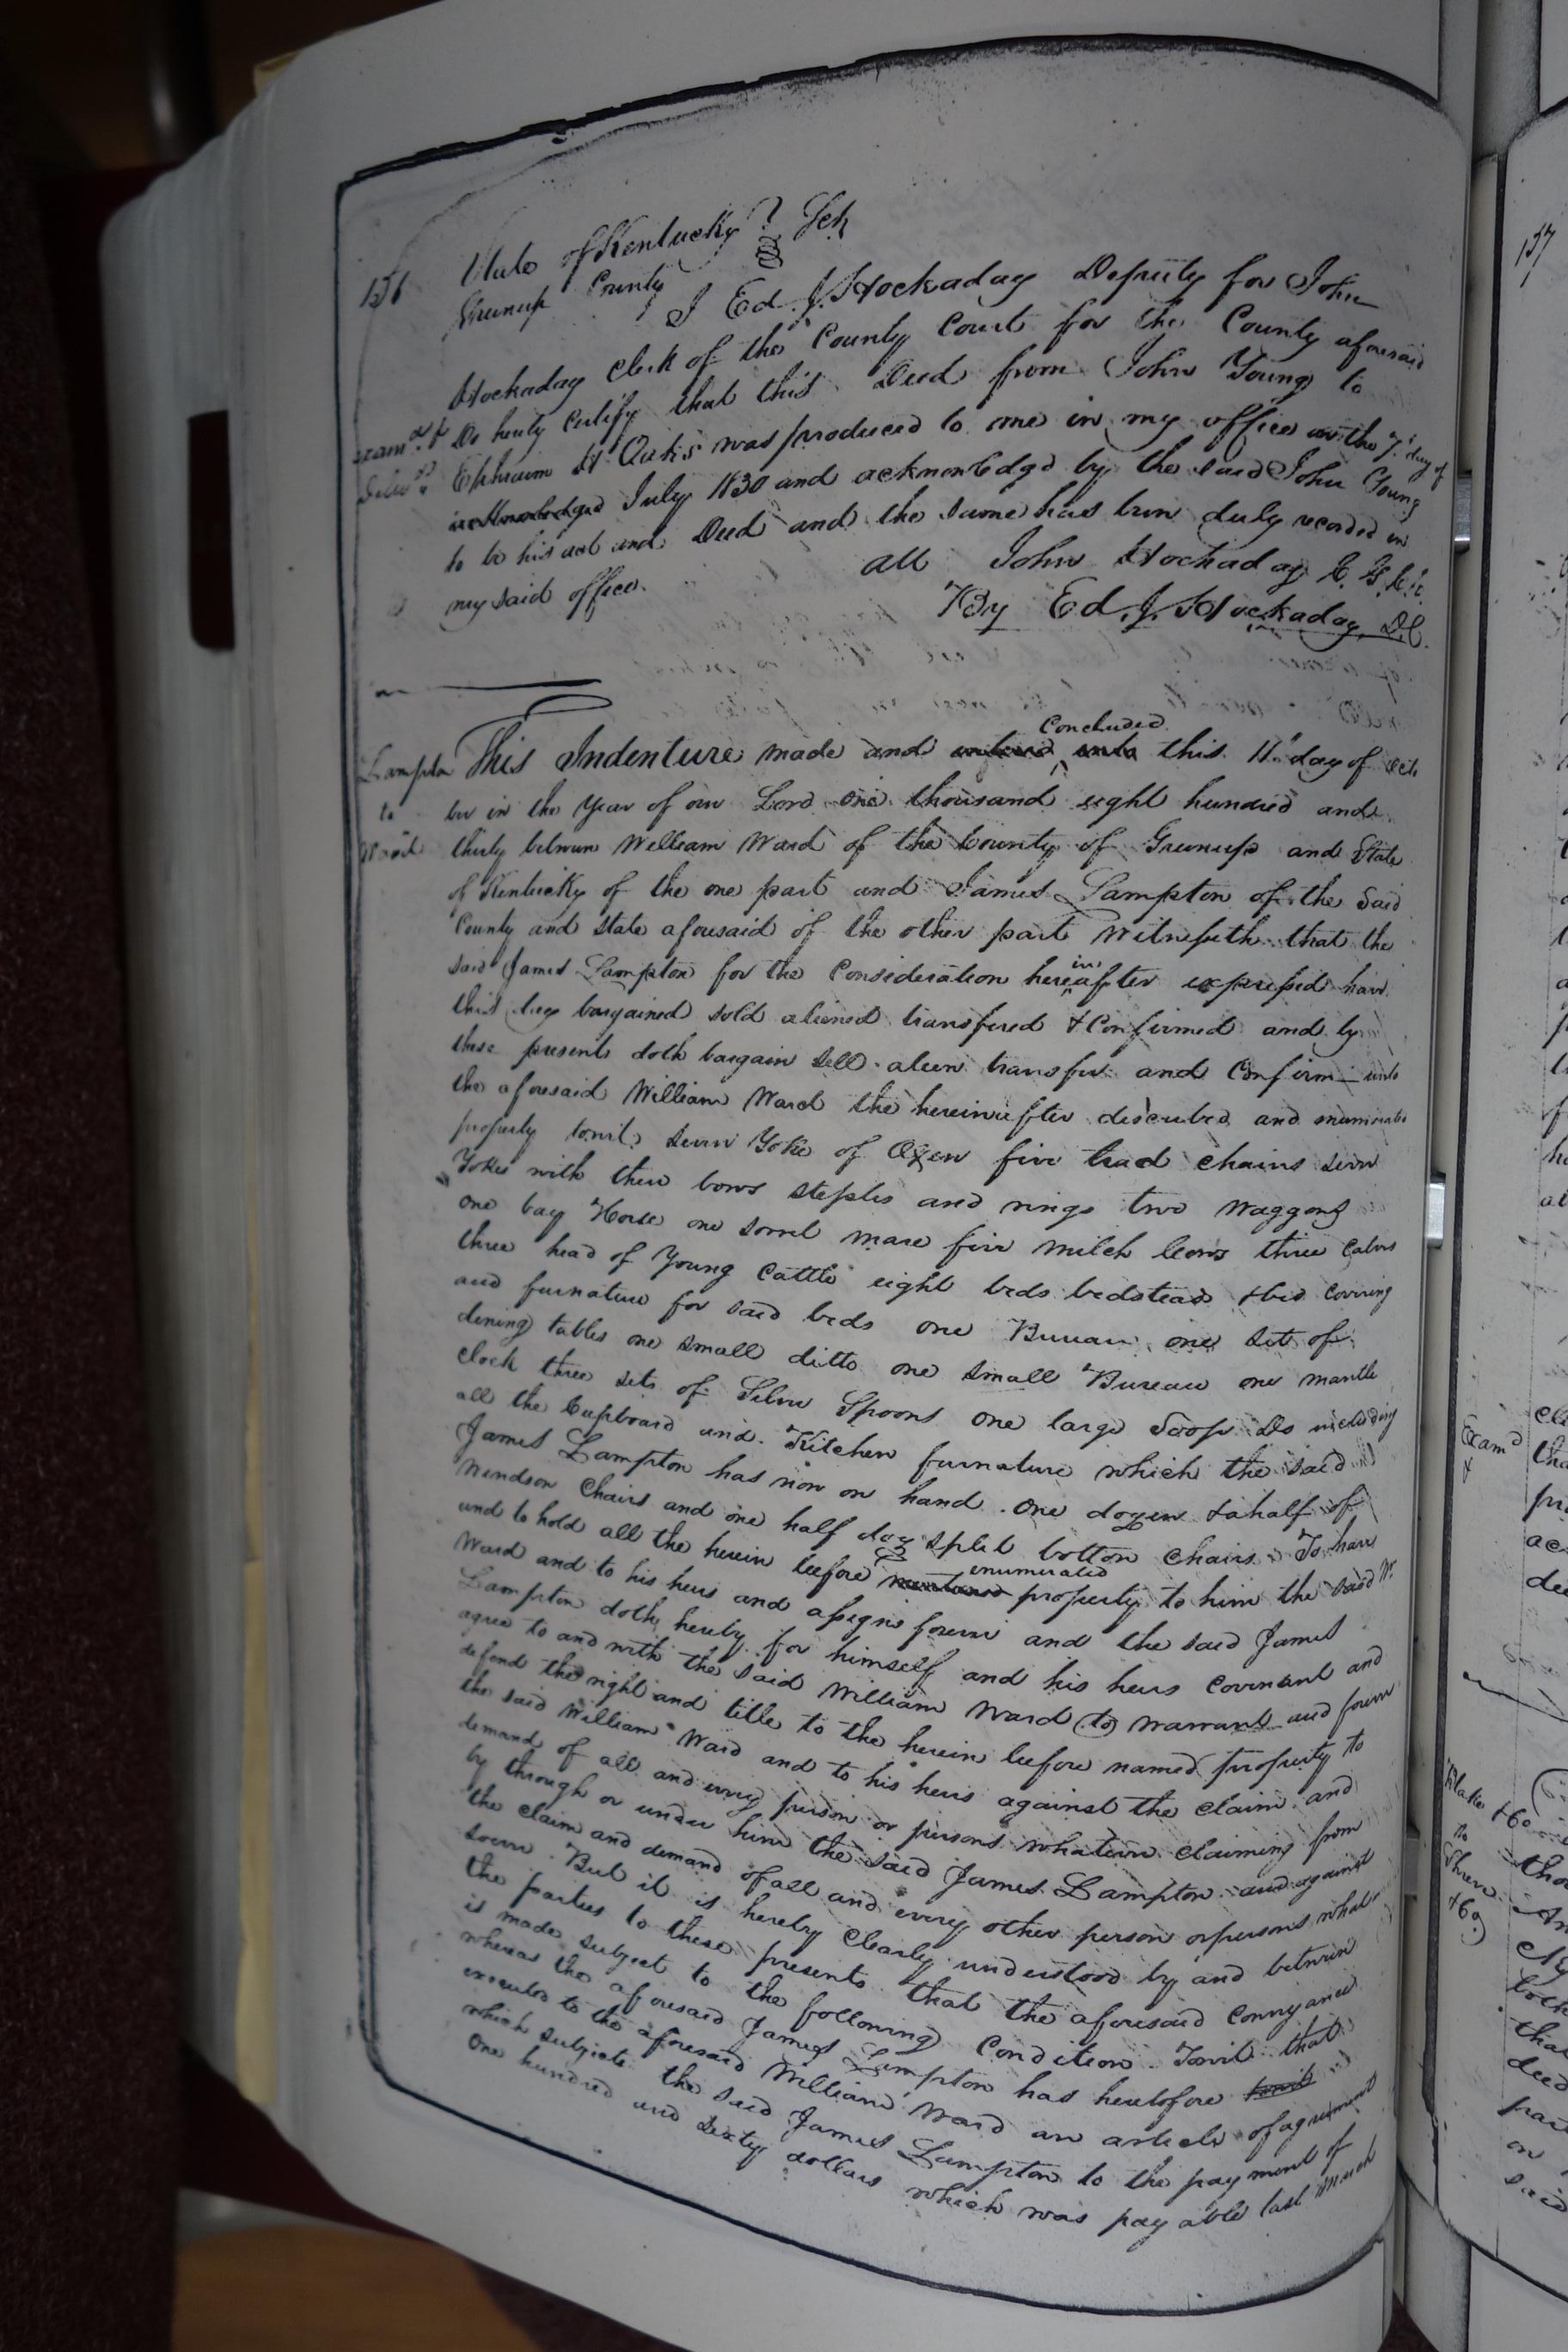 156
State of Kentucky } Sct
Greenup County
I Ed. J. Hockaday Deputy for John
Hockaday Clerk of the County Court for the County aforesaid
Exam.d & Do herby Certify that this Deed from John Young to
Deliv.d Ephraim H Oaks was produced to me in my office on the 7th day of
acknowledged July 1830 and acknowledgd by the said John Young
to be his act and Deed and the same has been duly recorded in
my said office.
att John Hockaday C. G. C. C.
By Ed. J. Hockaday D.C.
Lampton
to
Ward
Concluded
This Indenture made and entered into this 11th day of Octo
ber in the Year of our Lord one thousand eight hundred and
thirty between William Ward of the County of Greenup and State
of Kentucky of the one part and James Lampton of the said
County and State aforesaid of the other part Witnesseth that the
said James Lampton for the Consideration hereinafter expressed have
this day bargained sold aliened transfered & Confirmed and by
these presents doth bargain sell alien transfer and Confirm unto
the aforesaid William Ward the hereinafter described and enumerated
property towit, seven Yoke of Oxen five trad chains seven
Yokes with their bows steples and rings two waggons
one bay Horse one sorrel mare five milch Cows three Calves
three head of Young Cattle eight beds bedsteads & bed covering
and furnature for said beds one Bureau one set of
dening tables one small ditto one small Bureau one mantle
clock three sets of Silver Spoons one large Soop Do including
all the Cupboard and Kitchen furnature which the said
James Lampton has now on hand. one dozen & a half of
Windson Chairs and one half doz split bottom chairs. To have
and to hold all the herein before mentioned enumerated property to him the said Wm
Ward and to his heirs and assigns forever and the said James
Lampton doth hereby for himself and his heirs Covenant and
agree to and with the said William Ward (to) warrant and forever
defend the right and title to the herein before named property to
the said William Ward and to his heirs against the claim and
demand of all and every person or persons whatever claiming from
by through or under him the said James Lampton and against
the claim and demand of all and every other person or persons what
soever. But it is hereby Clearly understood by and between
the parties to these presents that the aforesaid Conveyance
is made subject to the following Condition Towit that
whereas the aforesaid James Lampton has heretofore
executed to the aforesaid William Ward an article of agreement
which subjects the said James Lampton to the payment of
One hundred and sixty dollars which was payable last March
157
Exam.d
&
Blake &Co
to
&Co